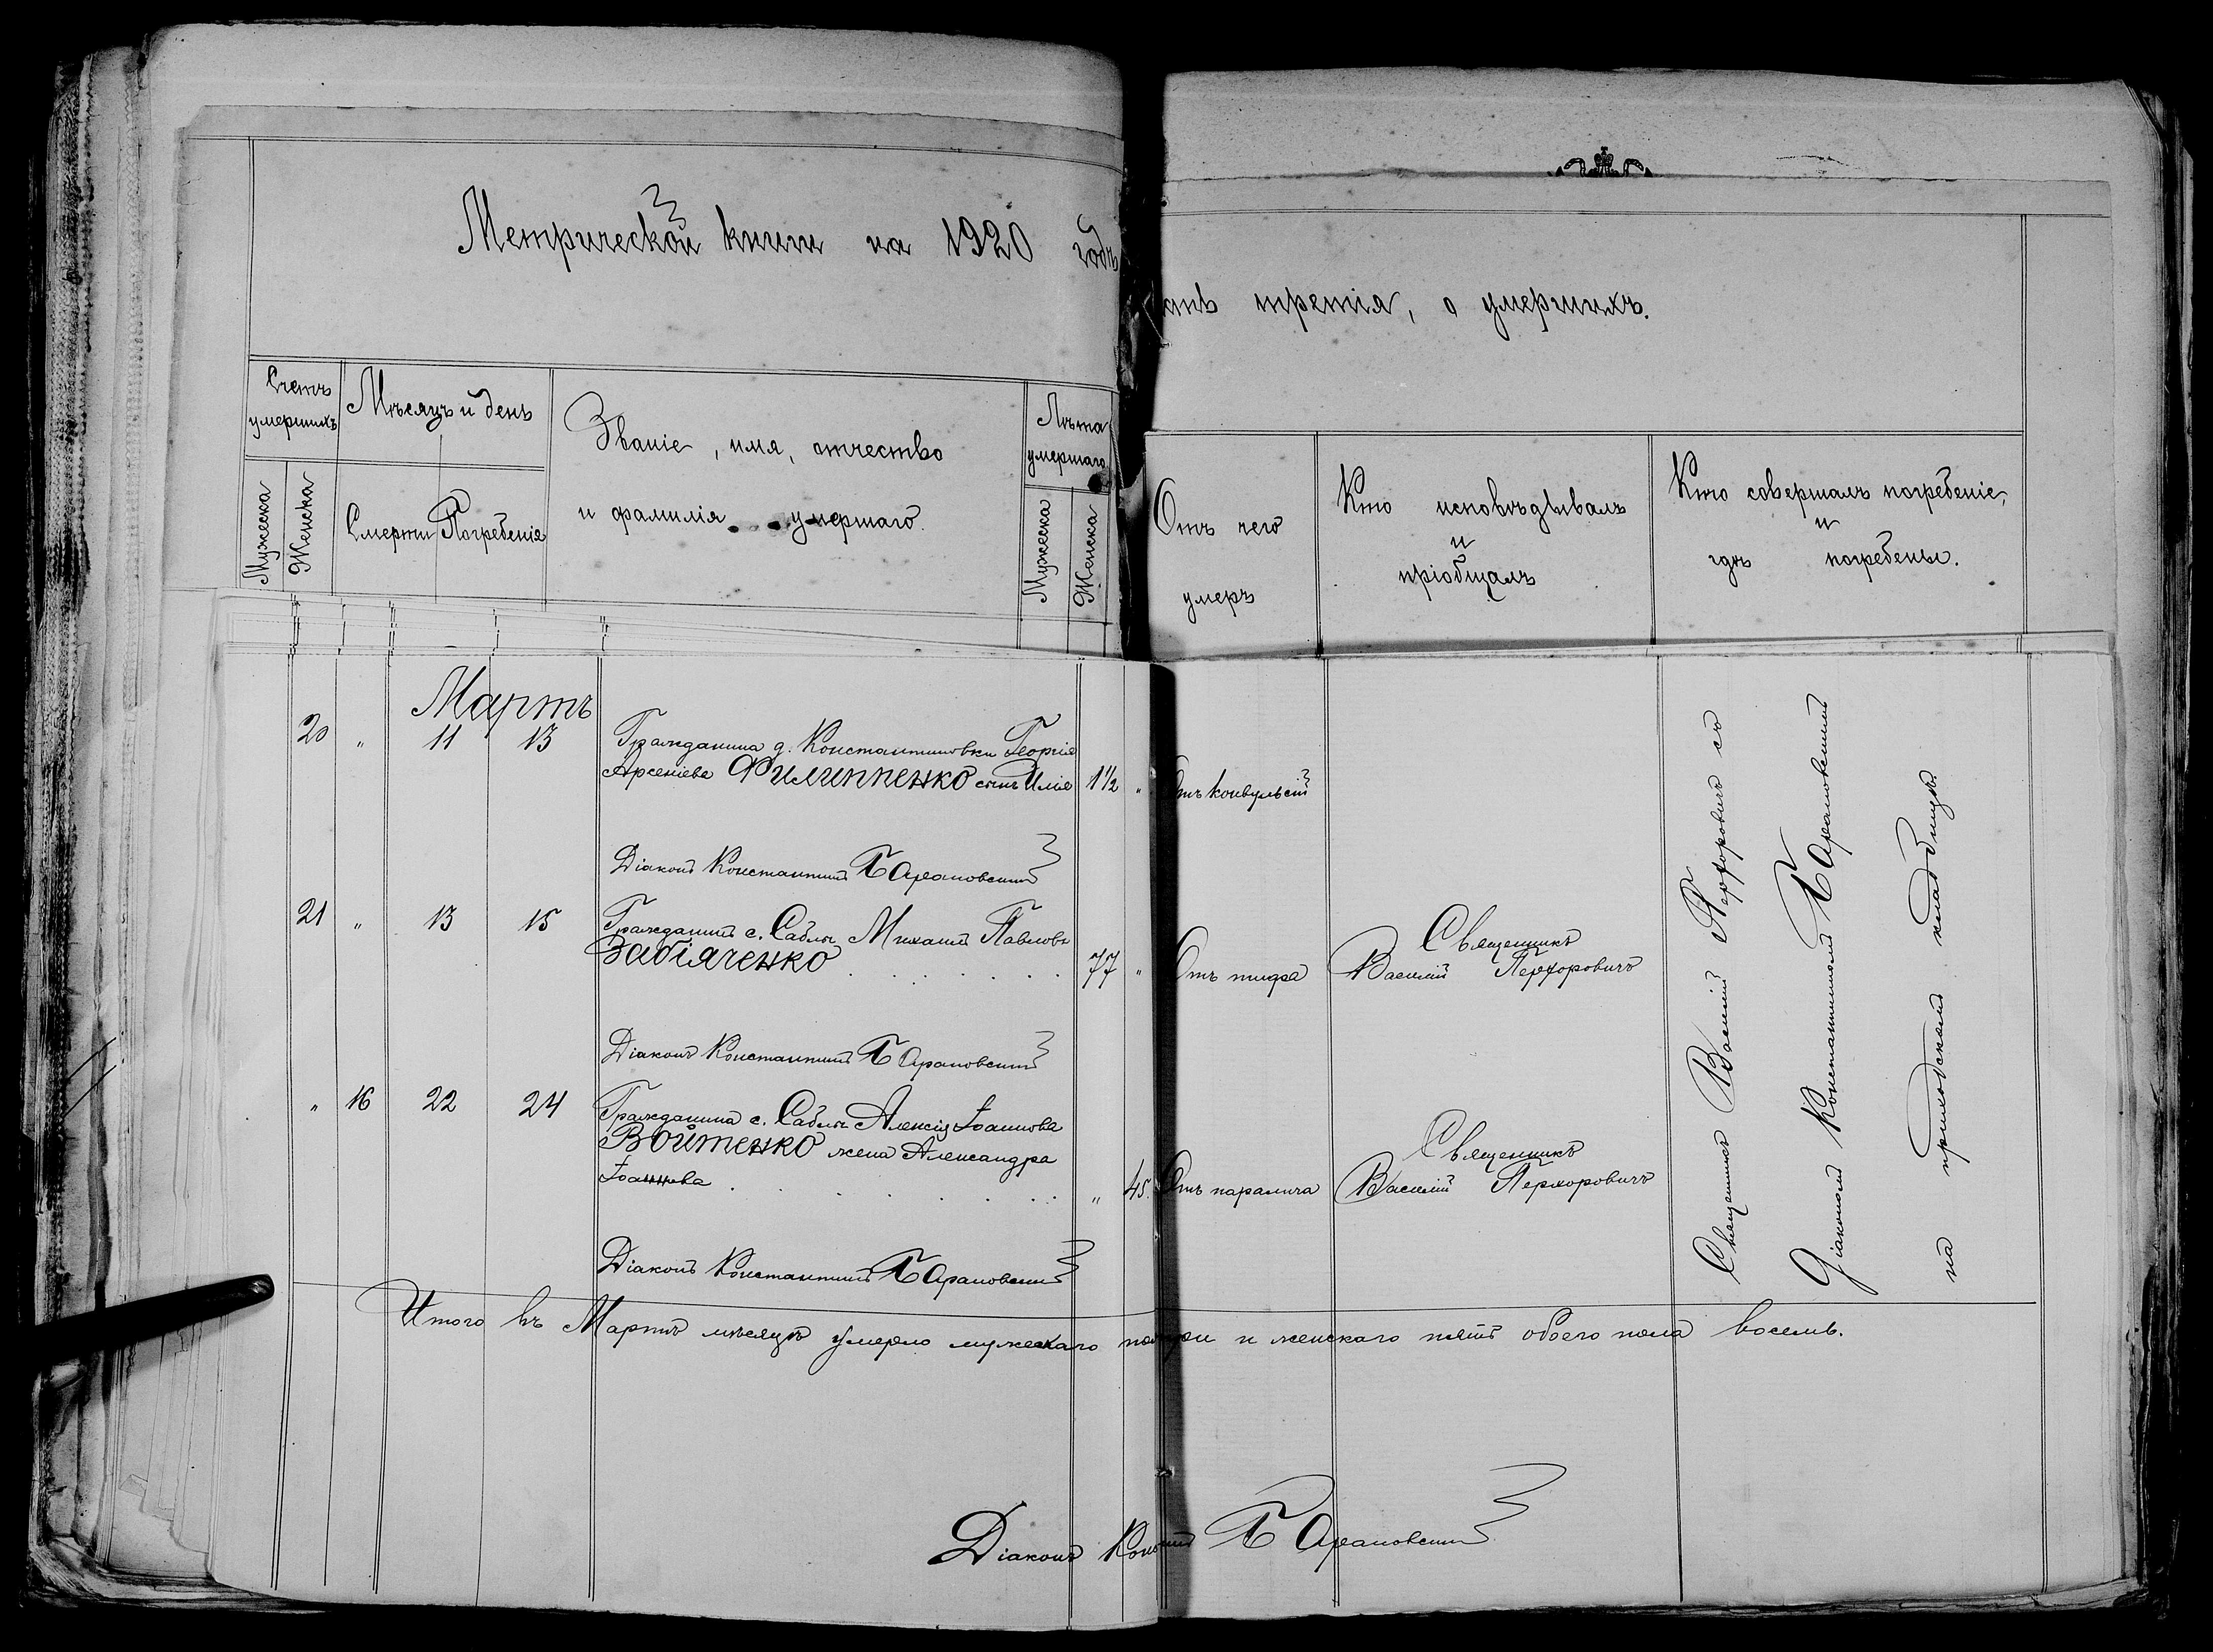 Метрической книги на 1920 годъ
третія, о умершихъ.
Счетъ умершихъ
Мѣсяцъ и день
Званіе, имя, отчество
и фамилія умершаго.
Лѣта умершаго
Мужеска
Женска
Смерти
Погребенія
Мужеска
Женска
Отъ чего
умеръ
Кто исповѣдывалъ
и
пріобщалъ
Кто совершалъ погребеніе,
и
гдѣ погребены.
Мартъ
20 " 11 13 Гражданина д. Константиновки Георгія
Арсеніева Филиппенко сынъ Илія 1½ " Отъ конвульсій
Діаконъ Константинъ Барановский
21 " 13 15 Гражданинъ с. Саблы Михаилъ Павловъ
Забіяченко 77 " Отъ тифа
Священникъ
Василій Перхоровичъ
Діаконъ Константинъ Барановский
" 16 22 24 Гражданина с. Саблы Алексія Іоаннова
Войтенко жена Александра
Іоаннова " 45. Отъ паралича
Священникъ
Василій Перхоровичъ
Діаконъ Константинъ Барановский
Священникъ Василій Перхоровичъ со
Діакономъ Константиномъ Барановскимъ
на приходскомъ кладбищѣ
Итого въ Мартѣ мѣсяцѣ умерло мужескаго три и женскаго пять обоего пола восемь.
Діаконъ Барановский